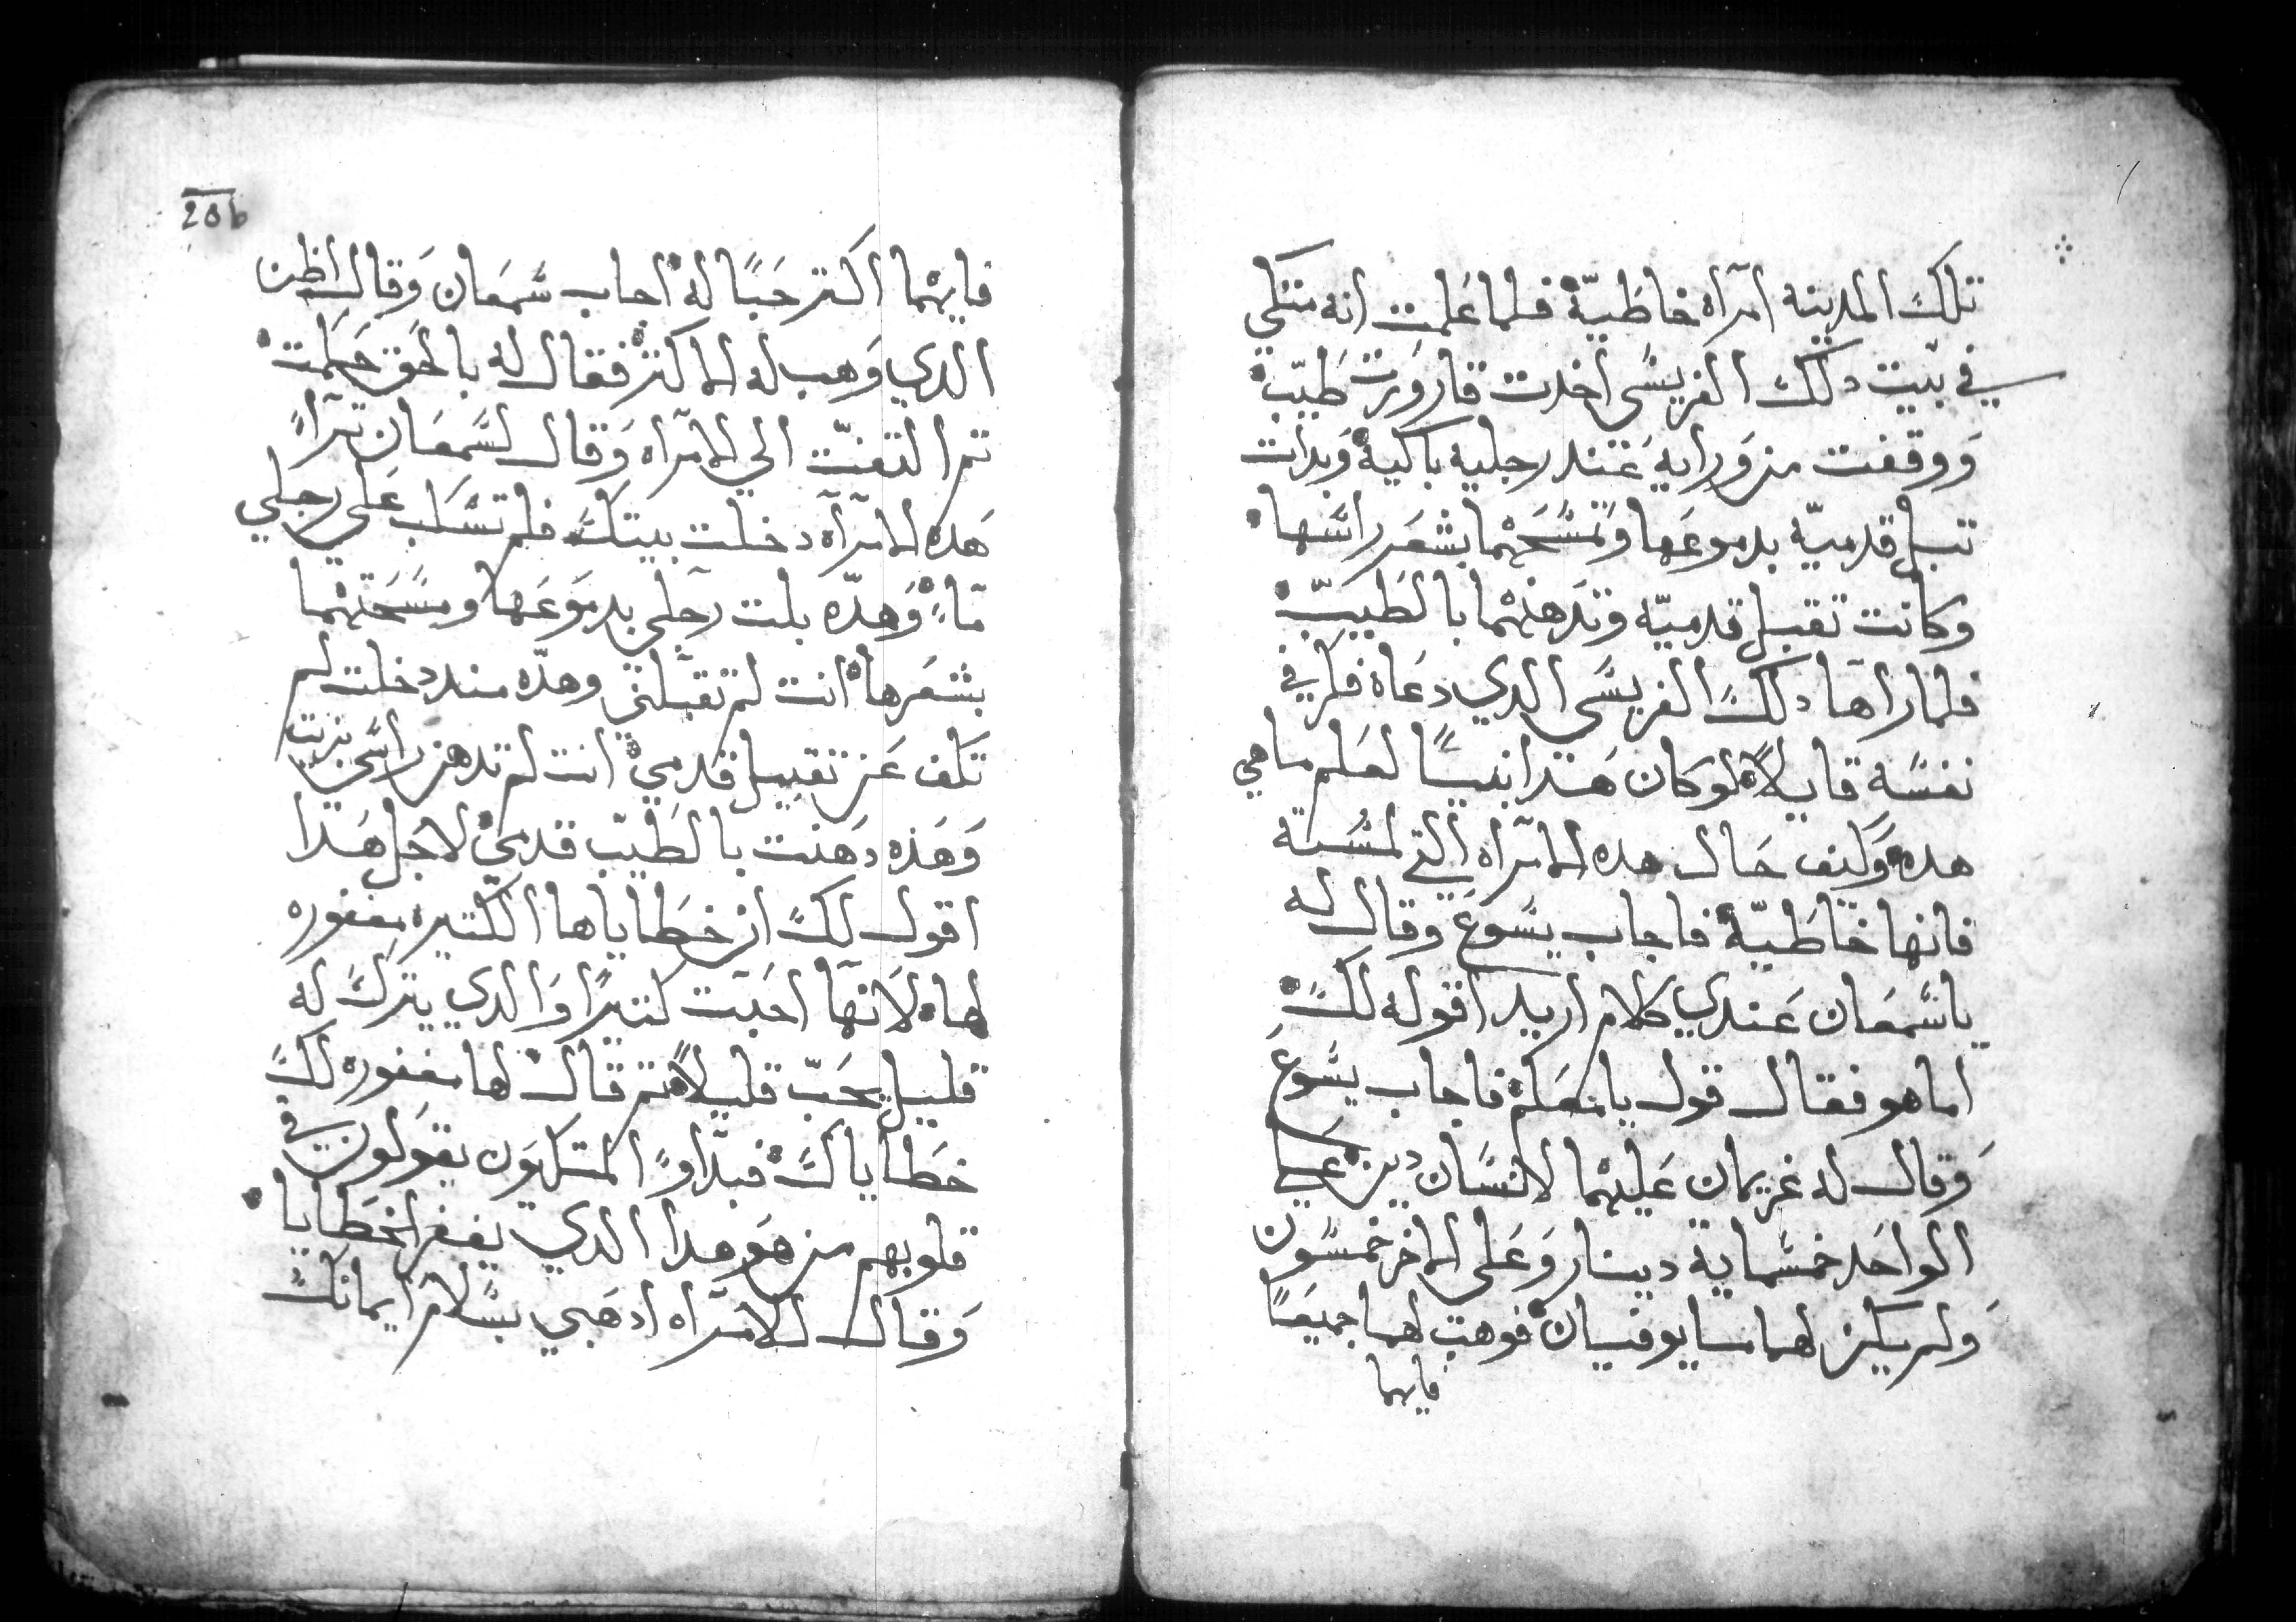 تلك المدينه امرآه خاطيّة فلما علمت انه متكي
في بيت دلك الفريسي اخدت قارورت طيّب
ووقفت من ورايه عند رجليه باكية وبدات
تبل قدميّه بدموعها وتمسحهما بشعر راسها
وكانت تقبل قدميّه وتدهنهما بالطيبّ
فلما راآها دلك الفريسي الدي دعاه فكر في
نفسه قايلاً لو كان هدا نبيًا لعلم ما هي
هده وكيف حال هده الامرآه التي لمسته
فانها خاطيّة فاجاب يسوع وقال له
يا سمعان عندي كلام اريد اقوله لك
اما هو فقال قول يا معلم فاجاب يسوع
وقال له غريمان عليهما لانسان دين علي
الواحد خمسماية دينار وعلى الاخر خمسون
ولم يكن لهما ما يوفيان فوهب لهما جميعًا
فايهما
20b
فايهما اكتر حبًا له اجاب سمعان وقال اظن
الدي وهب له الاكتر فقال له بالحق حكمت
تم التفتّ الي الامرآه وقال لسمعان تراً
هده الامرآه دخلت بيتك فلم تسكب على رجلي
مآء وهدّه بلت رجلي بدموعها ومسحتهما
بشعرها انت لم تقبّلني وهدّه مند دخلت لم
تكف عن تقبيل قدمي انت لم تدهن راسي بزيت
وهده دهنت بالطيّب قدمي لاجل هدا
اقول لك ان خطاياها الكتيره مغفوره
لها لانها احبت كتيرًا والدي يترك له
قليل يحبّ قليلاً تم قال لها مغفوره لك
خطاياك فبدّاوً المتكيون يقولون في
قلوبهم من هو هدا الدي يغفر الخطايا
وقال للامرآه ادهبي بسلام ايمانك